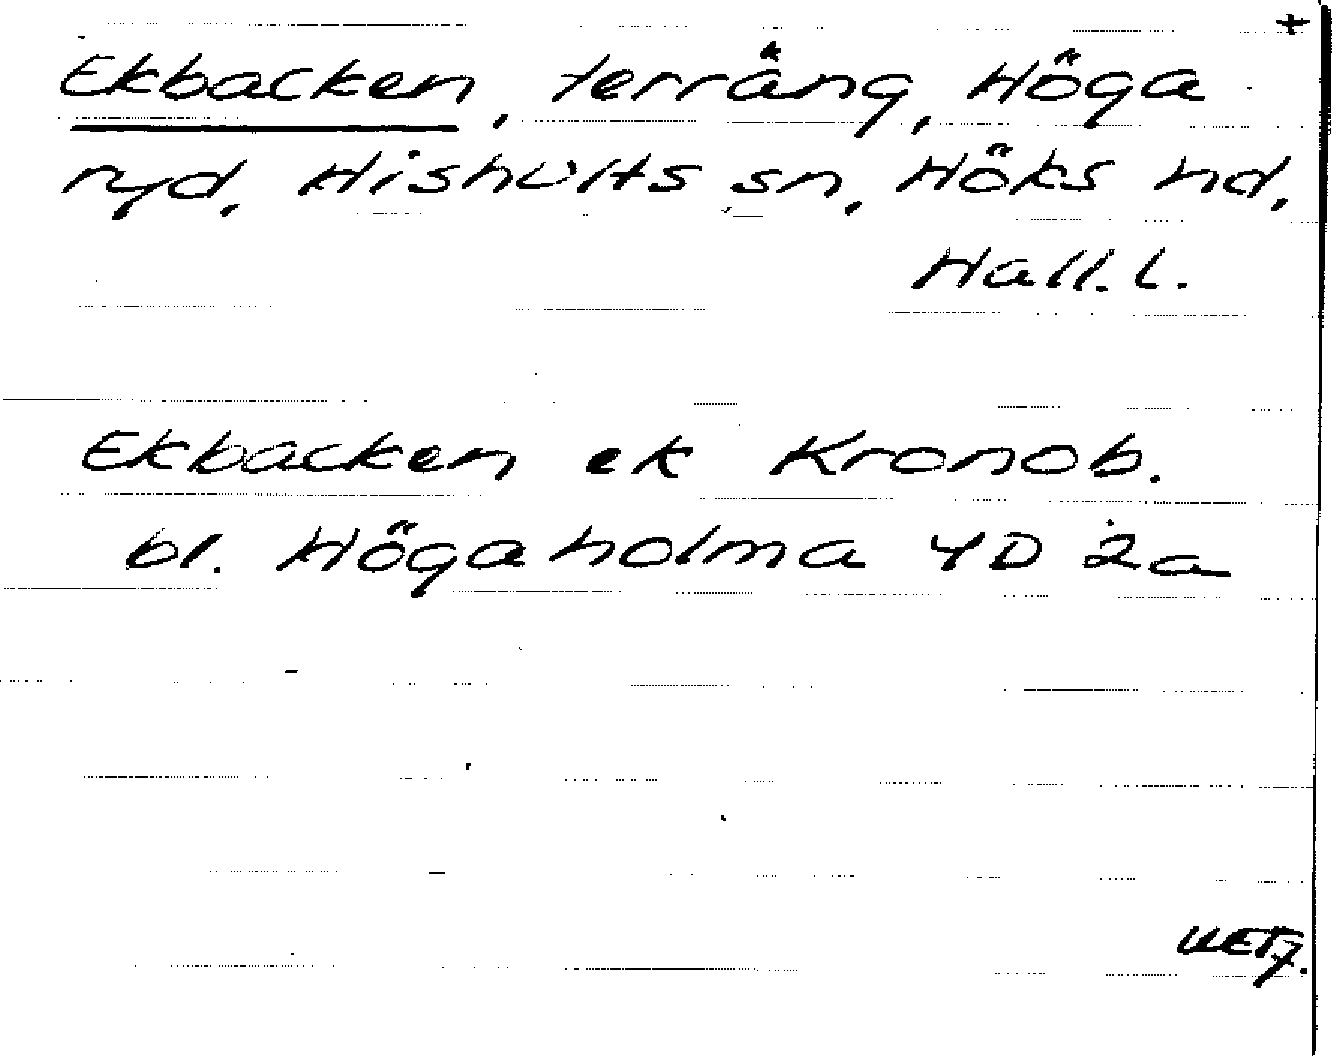 +
Ekbacken, terräng, Höga
ryd, Hishults sn, Höks hd,
Hall. l.
Ekbacken ek Kronob.
bl. Högaholma 4D 2a